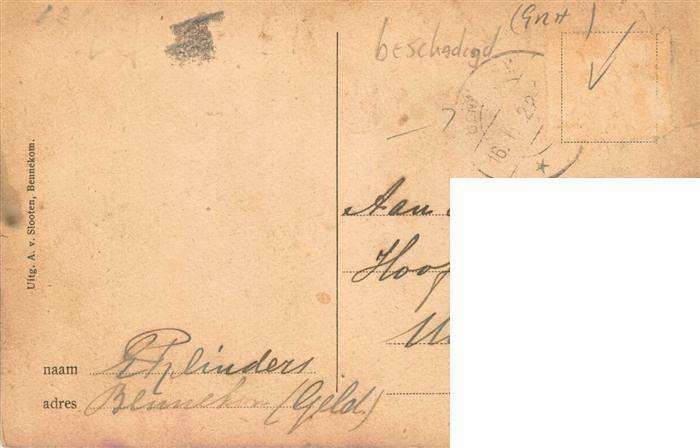 beschadigd (GRH)
Uitg. A. v. Slooten, Bennekom.
Aan
Hoof
naam Flinders
adres Bennekom (Geld.)